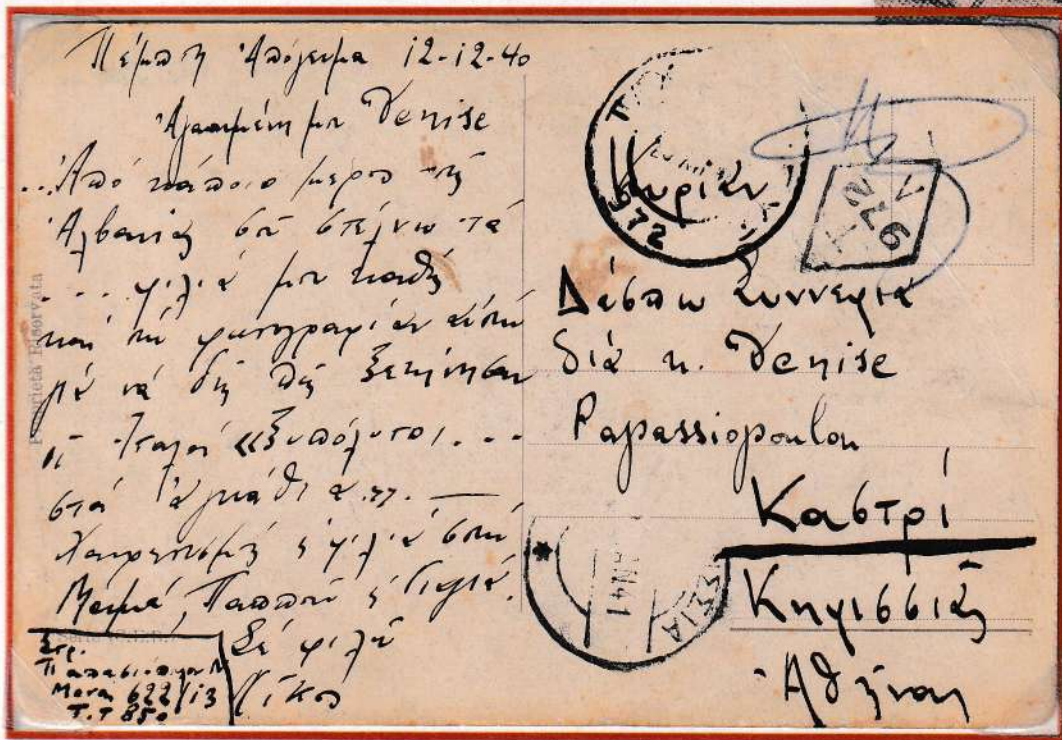 Πέμπτη Ἀπόγευμα 12-12-40
Ἀγαπημένη μου Denise
..Ἀπό κάποιο μέρος τῆς
Ἀλβανίας σοῦ στέλνω τά
... φιλιά μου καθώς
καί τή φωτογραφία αὐτή
γιά νά δῇς πῶς ξεκίνησαν
οἱ Ἰταλοί «ξυπόλυτοι...
στά ἀγκάθια."
Χαιρετισμούς & φιλιά στήν
Μαμά, Παπποῦ & Γιαγιά.
Σέ φιλῶ
Νίκος
Στρ.
Παπασιόπουλον Ν
Μονάς 622/13
Τ.Τ 850
Proprietà Riservata
972
Κυρίαν
Δέσπω Συννεφιά
διά κ. Denise
Papassiopoulou
Καστρί
Κηφισσιᾶς
Ἀθήνας
ΙΣΣΙΑ
41